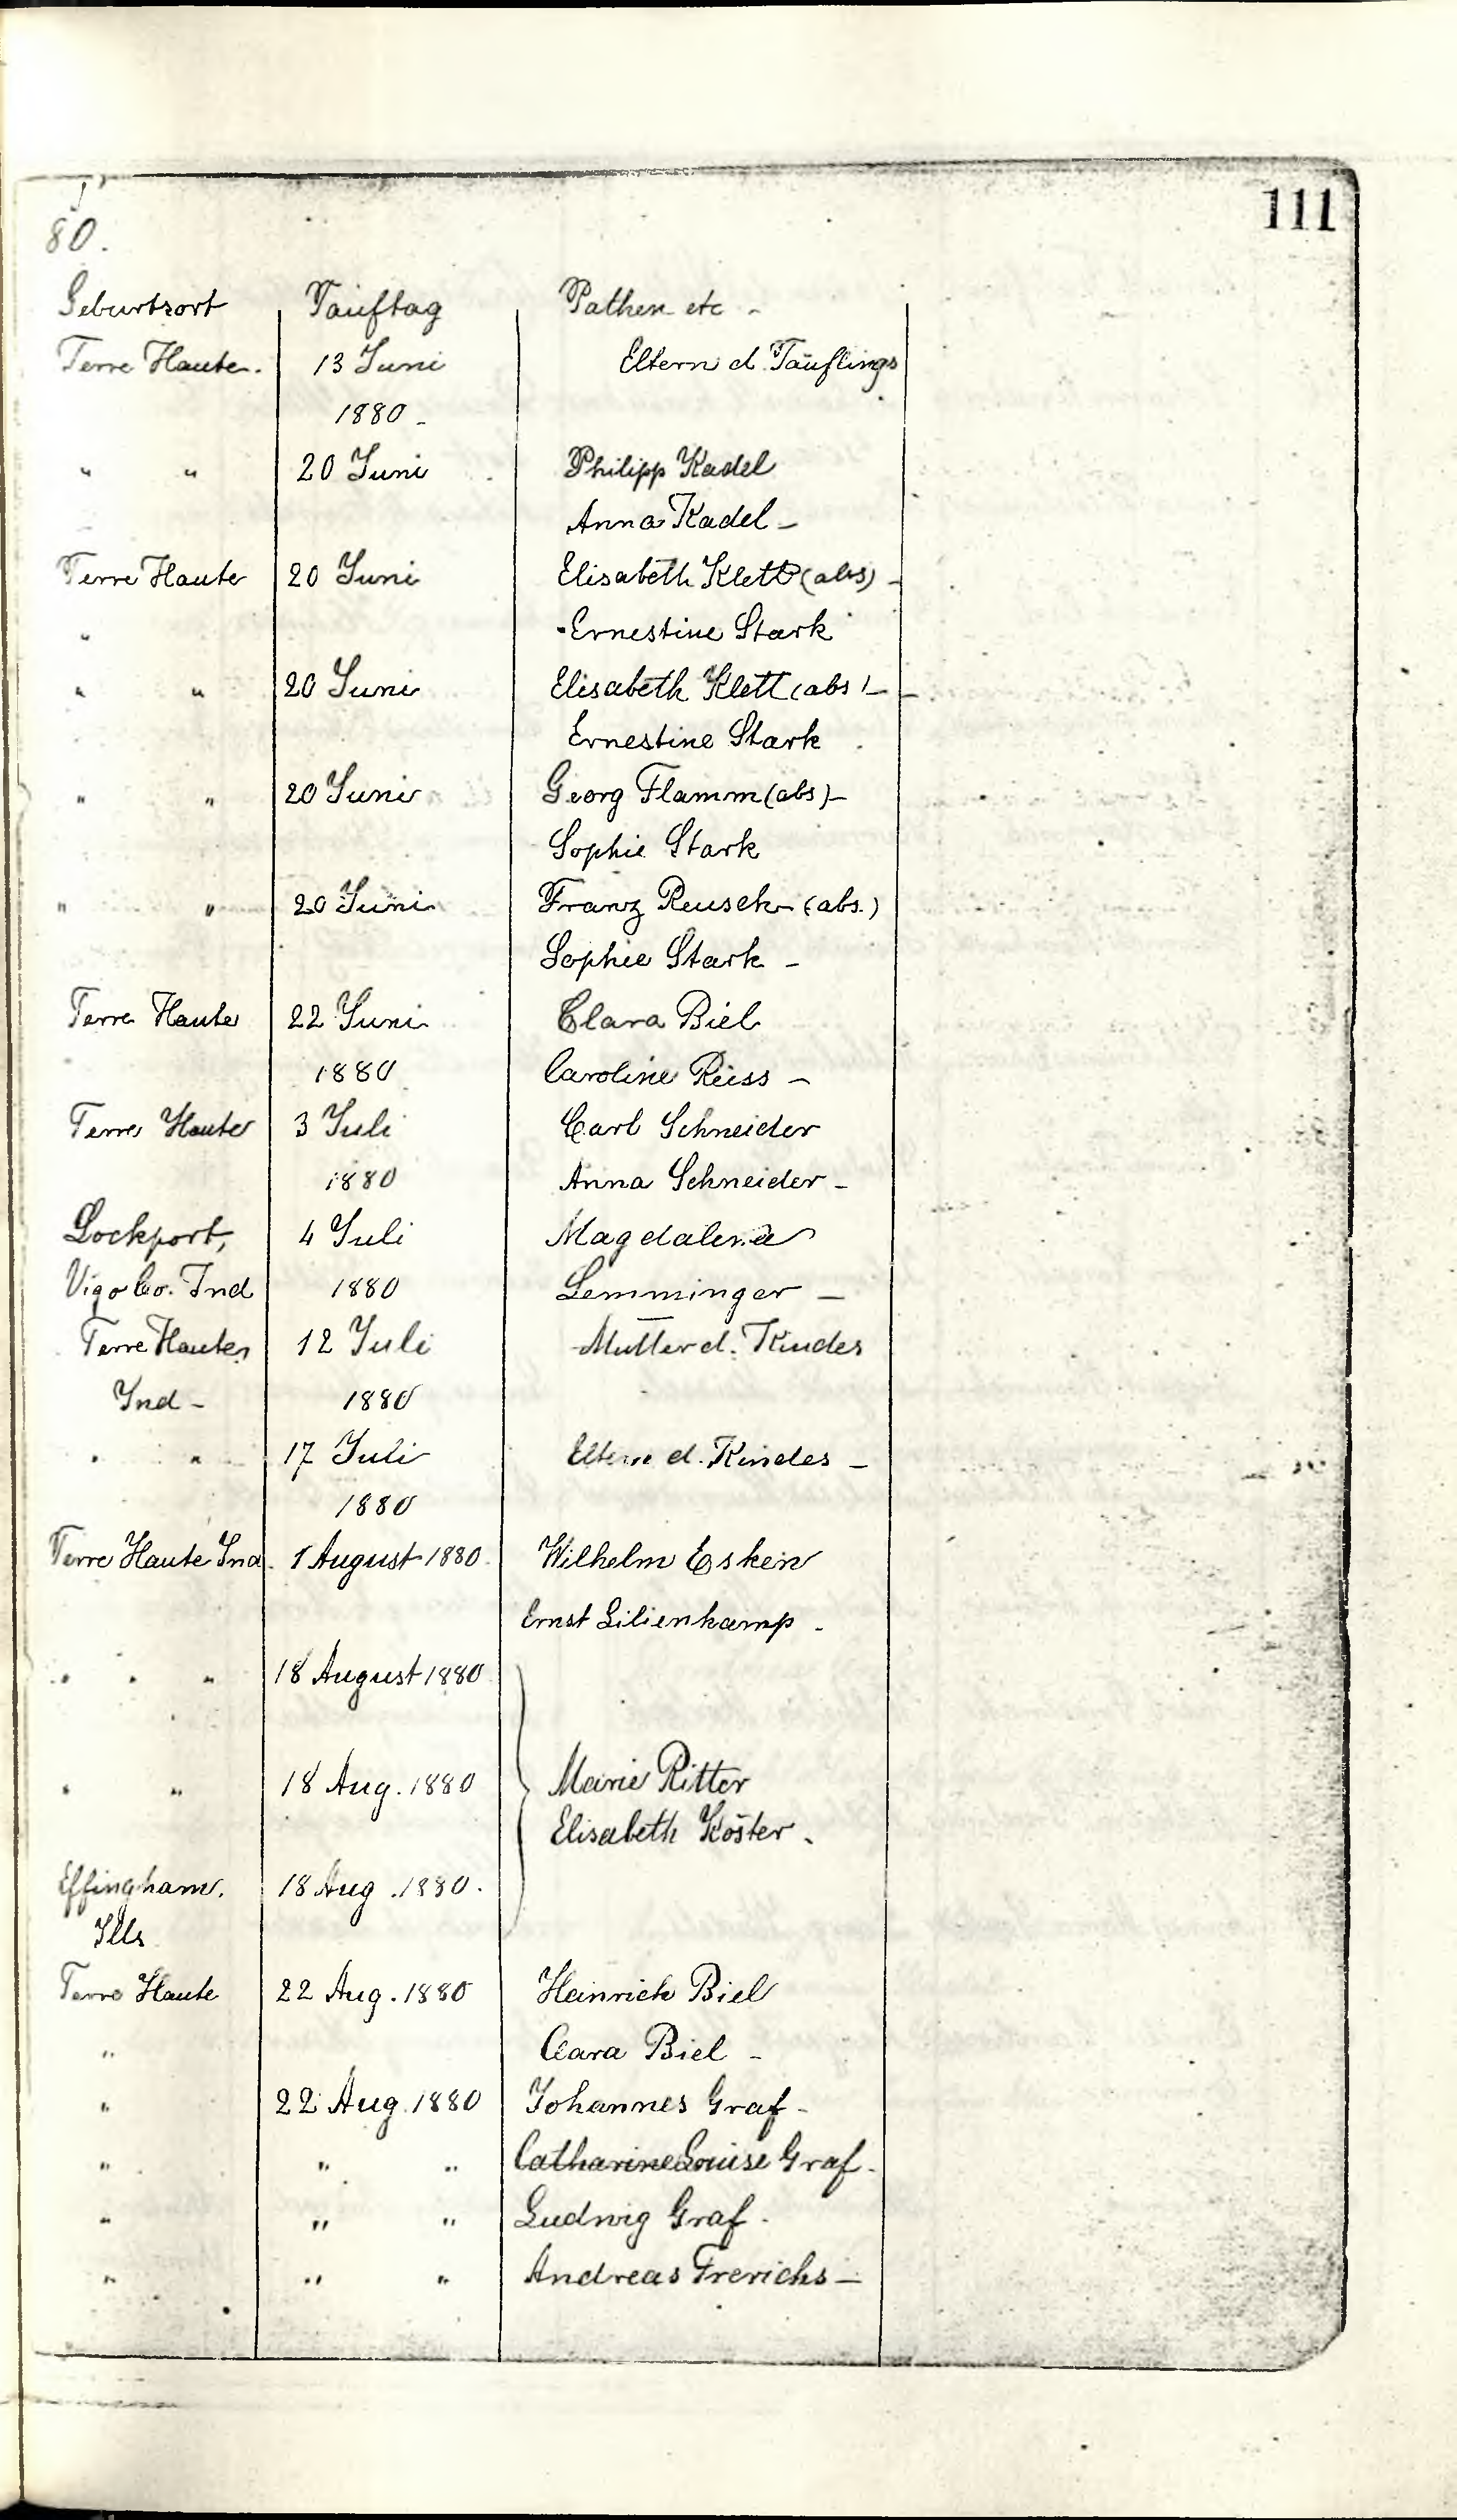 111
80.
Geburtsort Tauftag Pathen etc -
Terre Haute. 13 Juni Eltern d. Täuflings
1880 -
" " 20 Juni Philipp Kadel
Anna Kadel -
Terre Haute 20 Juni Elisabeth Klett (abs) -
" Ernestine Stark
" " 20 Juni Elisabeth Klett (abs) -
Ernestine Stark
" " 20 Juni Georg Flamm (abs) -
Sophie Stark
" " 20 Juni Franz Reusch (abs.)
Sophie Stark -
Terre Haute 22 Juni Clara Biel
1880 Caroline Reiss -
Terre Haute 3 Juli Carl Schneider
1880 Anna Schneider -
Lockport, 4 Juli Magdalena
Vigo Co. Ind 1880 Lemminger -
Terre Haute, 12 Juli Mutter d. Kindes
Ind - 1880
" " 17 Juli Eltern d. Kindes -
1880
Terre Haute Ind. 1 August 1880. Wilhelm Esken
Ernst Lilienkamp.
" " " 18 August 1880
" " 18 Aug. 1880 Marie Ritter
Elisabeth Köster.
Effingham. 18 Aug. 1880.
Ills
Terre Haute 22 Aug. 1880 Heinrich Biel
" Clara Biel -
" 22 Aug. 1880 Johannes Graf -
" " " Catharine Louise Graf.
" " " Ludwig Graf.
" " " Andreas Frerichs -